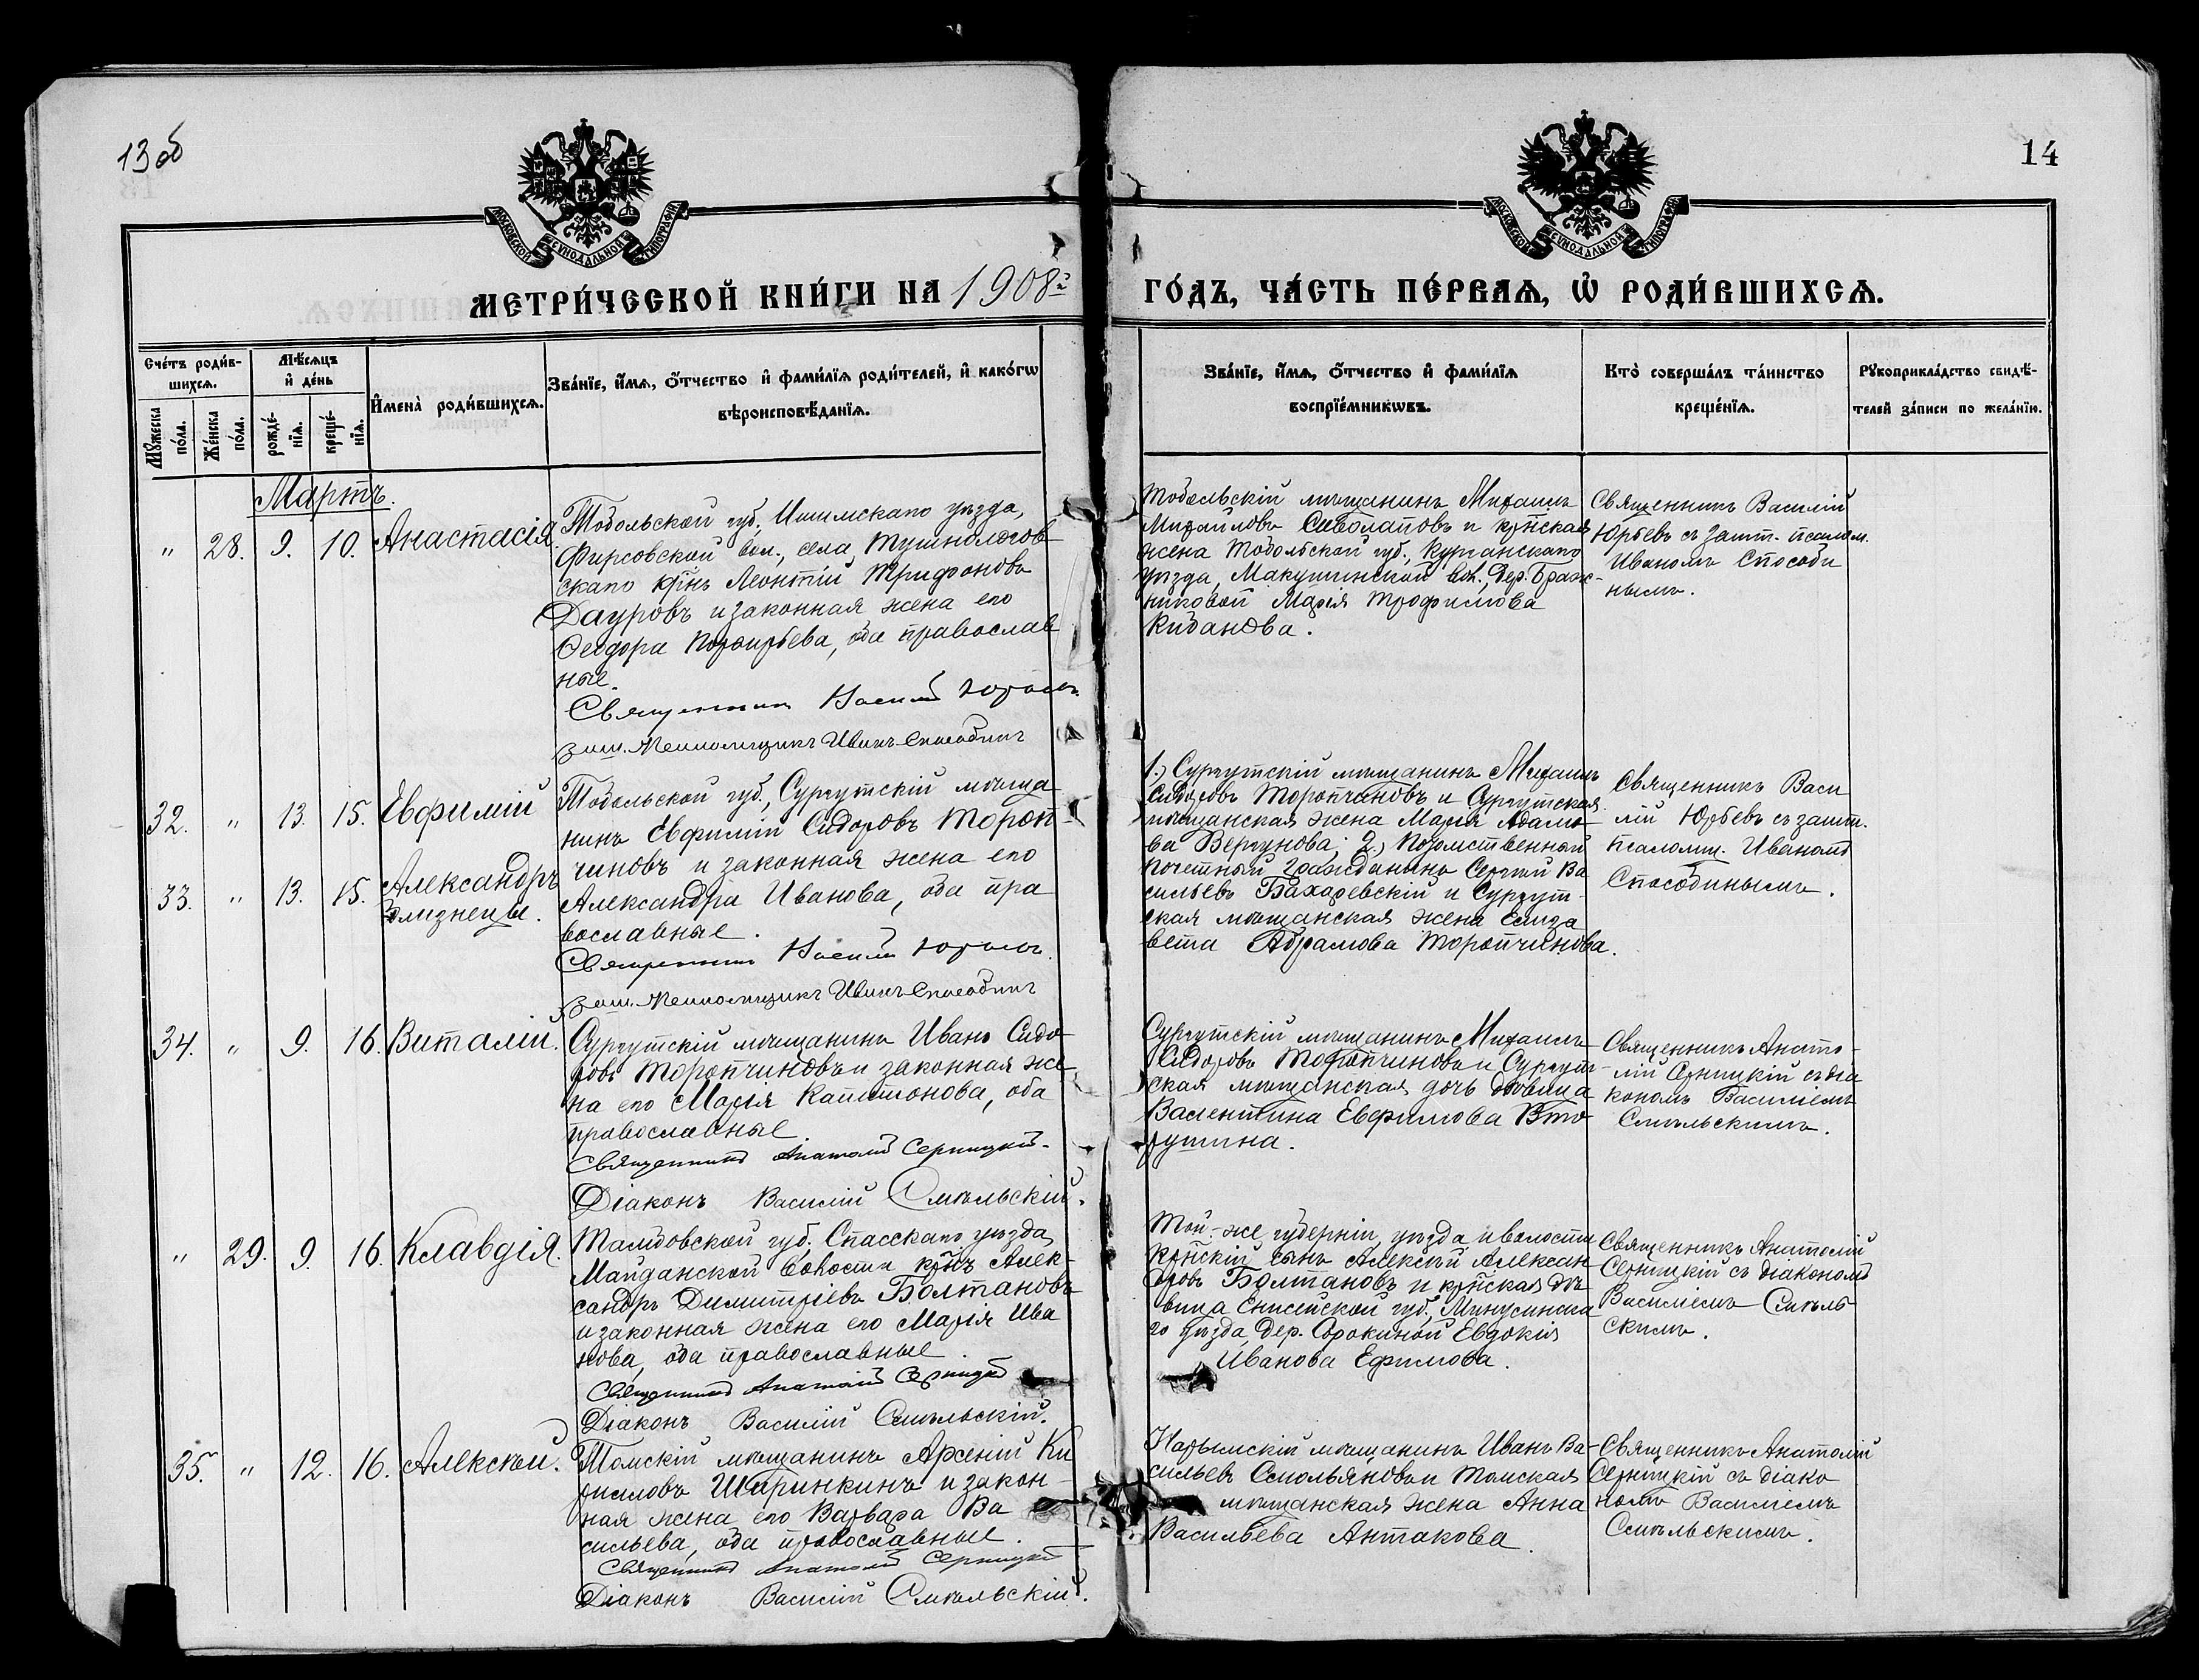 13 об
14
МОСКОВСКОЙ СѴНОДАЛЬНОЙ ТИПОГРАФІИ
МОСКОВСКОЙ СѴНОДАЛЬНОЙ ТИПОГРАФІИ
МЕТРИ́ЧЕСКОЙ КНИ́ГИ НА 1908й ГО́ДЪ, ЧА́СТЬ ПЕ́РВАѦ, Ѡ҆ РОДИ́ВШИХСѦ.
Сче́тъ роди́в-
шихсѧ.
Мꙋ́жеска по́ла.
Же́нска по́ла.
Мѣ́сѧцъ
и҆ де́нь
рожде́-
нїѧ.
креще́-
нїѧ.
И҆мена̀ роди́вшихсѧ.
Зва́нїе, и҆́мѧ, ѻ҆́тчество и҆ фами́лїѧ роди́телей, и҆ како́гѡ
вѣроисповѣ́данїѧ.
Зва́нїе, и҆́мѧ, ѻ҆́тчество и҆ фами́лїѧ
воспрїе́мникѡвъ.
Кто̀ соверша́лъ та́инство
креще́нїѧ.
Рꙋкоприкла́дство свидѣ́-
телей за́писи по жела́нїю.
Мартъ.
" 28. 9. 10. Анастасія
Тобольской губ., Ишимскаго уѣзда,
Фирсовской вол., села Тушнолобов
скаго кр̃нъ Леонтій Трифоновъ
Дауровъ и законная жена его
Ѳеодора Порфирьева, оба православ
ные.
Священникъ Василій Юрьевъ
заш. Псаломщикъ Иванъ Способинъ
Тобольскій мѣщанинъ Михаилъ
Михайловъ Сиволаповъ и кр̃нская
жена Тобольской губ., Курганскаго
уѣзда, Макушинской вол., дер. Браж-
никовой Марія Трофимова
Киданова.
Священникъ Василій
Юрьевъ съ зашт. псалом.
Иваномъ Способи
нымъ.
32. " 13. 15. Евфимій
33. " 13. 15. Александръ
близнецы.
Тобольской губ., Сургутскій мѣща
нинъ Евфимій Сидоровъ Тороп-
чиновъ и законная жена его
Александра Иванова, оба пра
вославные.
Священникъ Василій Юрьевъ.
заш. Псаломщикъ Иванъ Способинъ
1.) Сургутскій мѣщанинъ Михаилъ
Сидоровъ Торопчиновъ и Сургутская
мѣщанская жена Марія Адамо-
ва Вергунова; 2.) Потомственный
почетный гражданинъ Сергій Ва
сильевъ Бахаревскій и Сургут-
ская мѣщанская жена Елиза
вета Абрамова Торопчинова.
Священникъ Васи
лій Юрьевъ съ зашт.
псаломщ. Иваномъ
Способинымъ.
34. " 9. 16. Виталій.
Сургутскій мѣщанинъ Иванъ Сидо-
ровъ Торопчиновъ и законная же-
на его Марія Капитонова, оба
православные
Священникъ Анатолій Серницкій.
Діаконъ Василій Смѣльскій.
Сургутскій мѣщанинъ Михаилъ
Сидоровъ Торопчиновъ и Сургут-
ская мѣщанская дочь дѣвица
Валентина Евфимова Вто
рушина.
Священникъ Анато-
лій Серницкій съ діа
кономъ Василіемъ
Смѣльскимъ.
" 29. 9. 16. Клавдія.
Тамбовской губ. Спасскаго уѣзда
Майданской волости кр̃нъ Алек-
сандръ Димитріевъ Болтановъ
и законная жена его Марія Ива
нова, оба православные.
Священникъ Анатолій Серницкій
Діаконъ Василій Смѣльскій.
Той-же губерніи, уѣзда и волости
кр̃нскій сынъ Алексѣй Алексан
дровъ Болтановъ и кр̃нская дѣ-
вица Енисейской губ., Минусинска
го уѣзда, дер. Сорокиной Евдокія
Иванова Ефимова.
Священникъ Анатолій
Серницкій съ діакономъ
Василіемъ Смѣль
скимъ.
35. " 12. 16. Алексѣй.
Томскій мѣщанинъ Арсеній Ки
риловъ Ширинкинъ и закон-
ная жена его Варвара Ва
сильева, оба православные.
Священникъ Анатолій Серницкій
Діаконъ Василій Смѣльскій.
Нарымскій мѣщанинъ Иванъ Ва-
сильевъ Смольяновъ и Томская
мѣщанская жена Анна
Васильева Антакова.
Священникъ Анатолій
Серницкій съ діако
номъ Василіемъ
Смѣльскимъ.